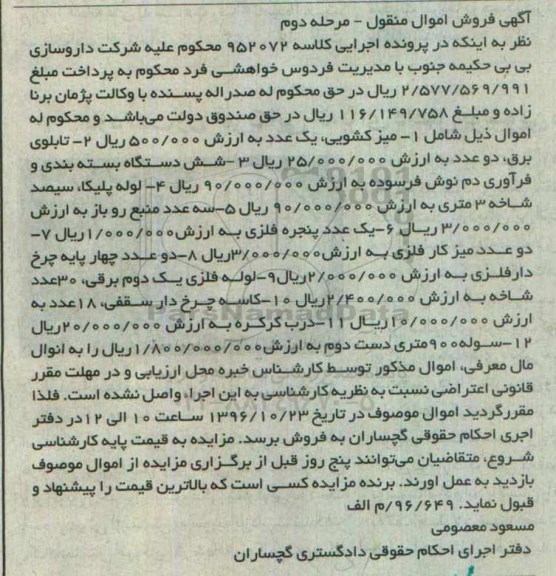 آگهی فروش اموال منقول - مرحله دوم
نظر به اینکه در پرونده اجرایی کلاسه ۹۵۲۰۷۲ محکوم علیه شرکت داروسازی
بی بی حکیمه جنوب با مدیریت فردوس خواهشی فرد محکوم به پرداخت مبلغ
۲/۵۷۷/۵۶۹/۹۹۱ ریال در حق محکوم له صدراله پسنده با وکالت پژمان برنا
زاده و مبلغ ۱۱۶/۱۴۹/۷۵۸ ریال در حق صندوق دولت می‌باشد و محکوم له
اموال ذیل شامل ۱- میز کشویی، یک عدد به ارزش ۵۰۰/۰۰۰ ریال ۲- تابلوی
برق، دو عدد به ارزش ۲۵/۰۰۰/۰۰۰ ریال ۳-شش دستگاه بسته بندی و
فرآوری دم نوش فرسوده به ارزش ۹۰/۰۰۰/۰۰۰ ریال ۴- لوله پلیکا، سیصد
شاخه ۳ متری به ارزش ۹۰/۰۰۰/۰۰۰ ریال ۵-سه عدد منبع رو باز به ارزش
۳/۰۰۰/۰۰۰ ریال ۶-یک عدد پنجره فلزی به ارزش۱/۰۰۰/۰۰۰ریال ۷-
دو عدد میز کار فلزی به ارزش۳/۰۰۰/۰۰۰ریال ۸-دو عدد چهار پایه چرخ
دارفلزی به ارزش ۲/۰۰۰/۰۰۰ریال۹-لوله فلزی یک دوم برقی، ۳۰عدد
شاخه به ارزش ۲/۴۰۰/۰۰۰ریال ۱۰-کاسه چرخ دار سقفی، ۱۸عدد به
ارزش ۱۰/۰۰۰/۰۰۰ریال ۱۱-درب کرکره به ارزش ۲۰/۰۰۰/۰۰۰ریال
۱۲-سوله۹۰۰متری دست دوم به ارزش۱/۸۰۰/۰۰۰/۰۰۰ریال را به انوال
مال معرفی، اموال مذکور توسط کارشناس خبره محل ارزیابی و در مهلت مقرر
قانونی اعتراضی نسبت به نظریه کارشناسی به این اجرا، واصل نشده است. فلذا
مقررگردید اموال موصوف در تاریخ ۱۳۹۶/۱۰/۲۳ ساعت ۱۰ الی ۱۲در دفتر
اجری احکام حقوقی گچساران به فروش برسد. مزایده به قیمت پایه کارشناسی
شروع، متقاضیان می‌توانند پنج روز قبل از برگزاری مزایده از اموال موصوف
بازدید به عمل اورند. برنده مزایده کسی است که بالاترین قیمت را پیشنهاد و
قبول نماید. ۹۶/۶۴۹/م الف
مسعود معصومی
دفتر اجرای احکام حقوقی دادگستری گچساران
ParsNamadData